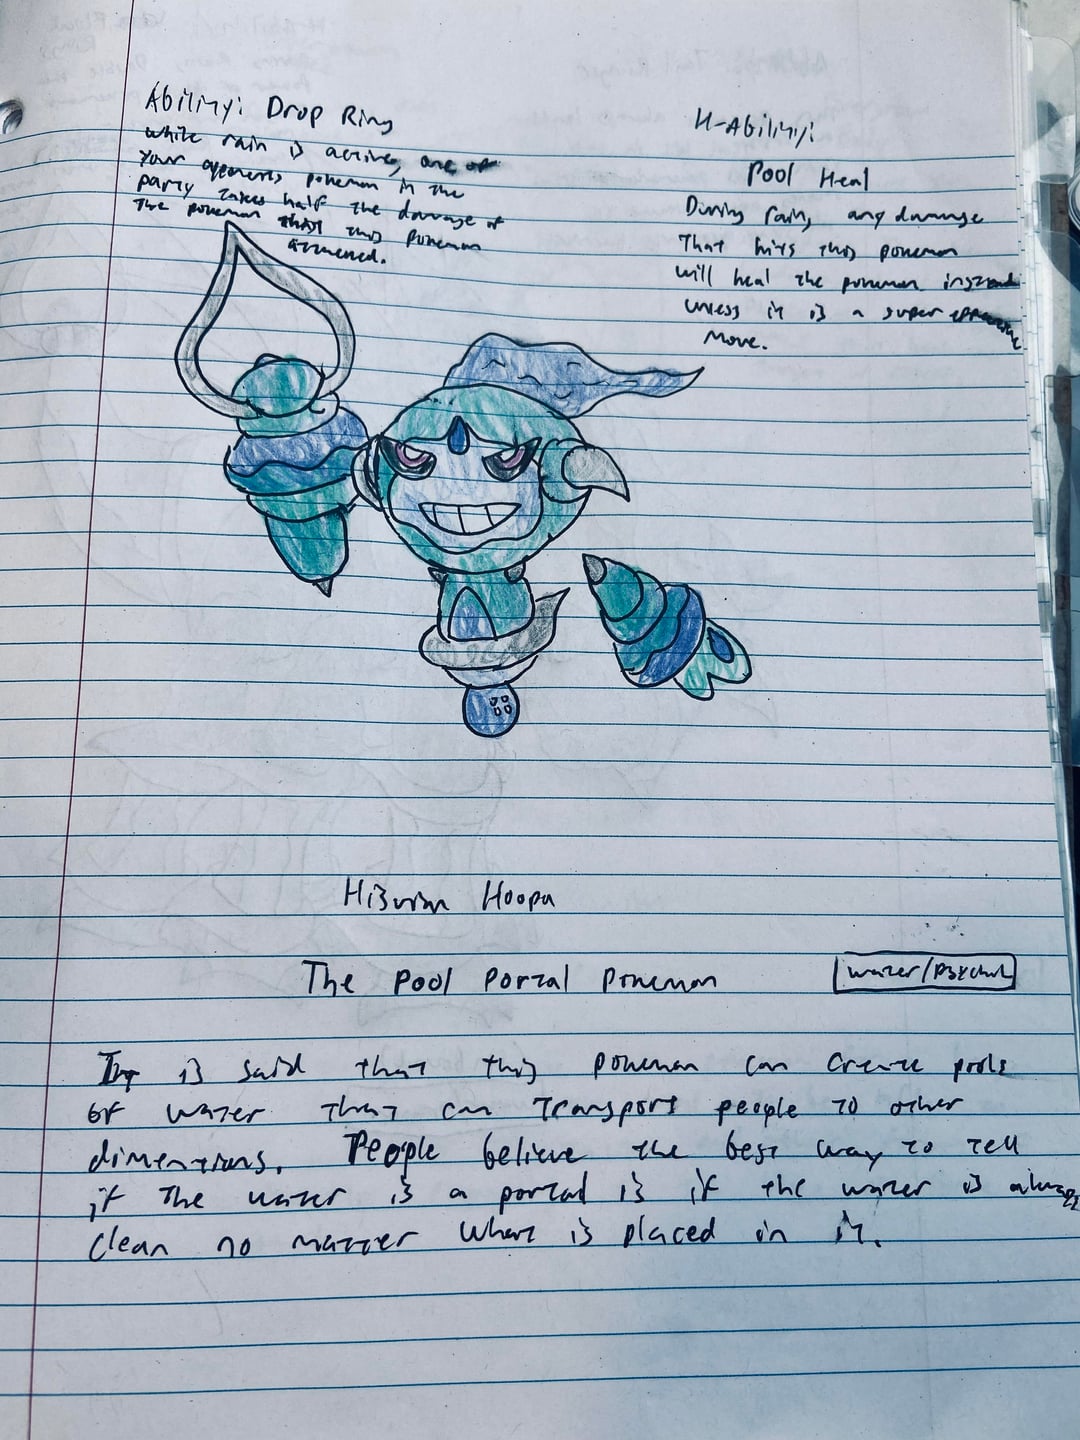 Ability: Drop Ring
while rain is active, one of
your opponents pokemon in the
party takes half the damage of
the pokemon that this pokemon
attacked.
H-Ability:
Pool Heal
During rain, any damage
that hits this pokemon
will heal the pokemon instead
unless it is a super effective
move.
Hisuian Hoopa
The Pool Portal Pokemon
water/psychic
It is said that this pokemon can create pools
of water that can transport people to other
dimentions. People believe the best way to tell
if the water is a portal is if the water is always
clean no matter what is placed in it.